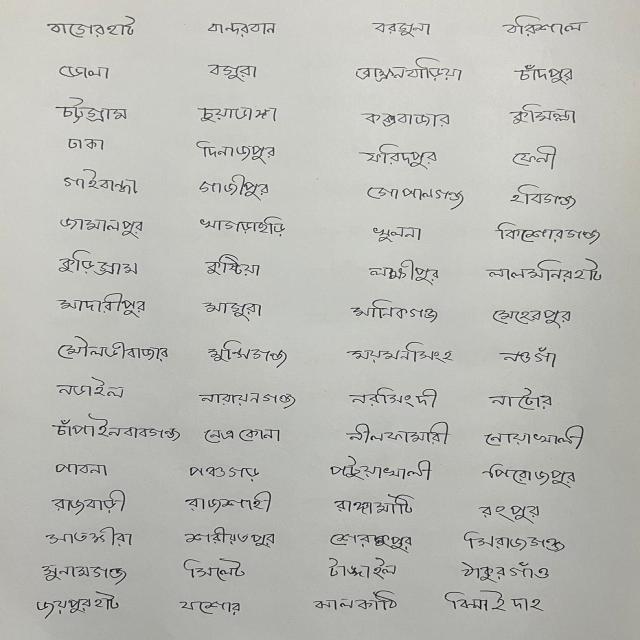 বাগেরহাট বান্দরবান বরগুনা বরিশাল
ভোলা বগুরা ব্রাহ্মনবাড়িয়া চাঁদপুর
চট্টগ্রাম চুয়াডাঙ্গা কক্সবাজার কুমিল্লা
ঢাকা দিনাজপুর ফরিদপুর ফেনী
গাইবান্ধা গাজীপুর গোপালগঞ্জ হবিগঞ্জ
জামালপুর খাগড়াছড়ি খুলনা কিশোরগঞ্জ
কুড়িগ্রাম কুষ্টিয়া লক্ষীপুর লালমনিরহাট
মাদারীপুর মাগুরা মানিকগঞ্জ মেহেরপুর
মৌলভীবাজার মুন্সিগঞ্জ ময়মনসিংহ নওগাঁ
নড়াইল নারায়নগঞ্জ নরসিংদী নাটোর
চাঁপাইনবাবগঞ্জ নেত্রকোনা নীলফামারী নোয়াখালী
পাবনা পঞ্চগড় পটুয়াখালী পিরোজপুর
রাজবাড়ী রাজশাহী রাঙ্গামাটি রংপুর
সাতক্ষীরা শরীয়তপুর শেরপুর সিরাজগঞ্জ
সুনামগঞ্জ সিলেট টাঙ্গাইল ঠাকুরগাঁও
জয়পুরহাট যশোর ঝালকাঠি ঝিনাইদাহ